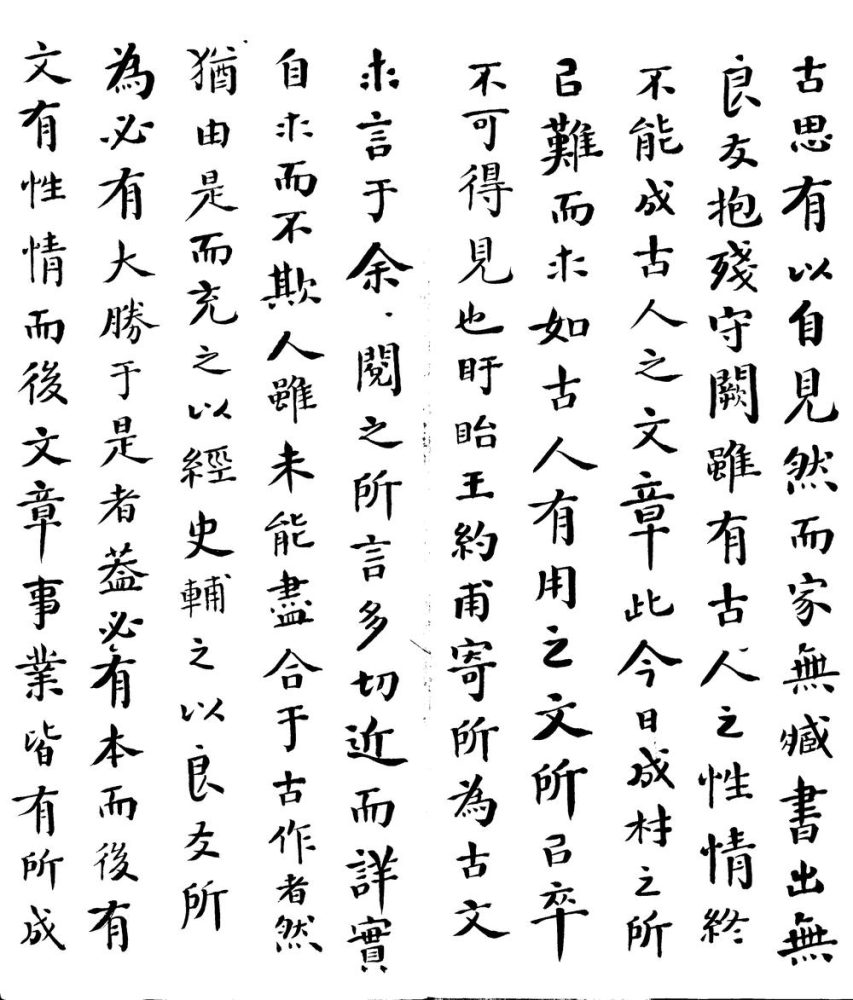 古思有以自見然而家無臧書出無
良友抱殘守闕雖有古人之性情終
不能成古人之文章此今日成材之所
已難而求如古人有用之文所已卒
不可得見也盱眙王約甫寄所為古文
求言于余閱之所言多切近而詳實
自求而不欺人雖未能盡合于古作者然
猶由是而充之以經史輔之以良友所
為必有大勝于是者葢必有本而後有
文有性情而後文章事業皆有所成